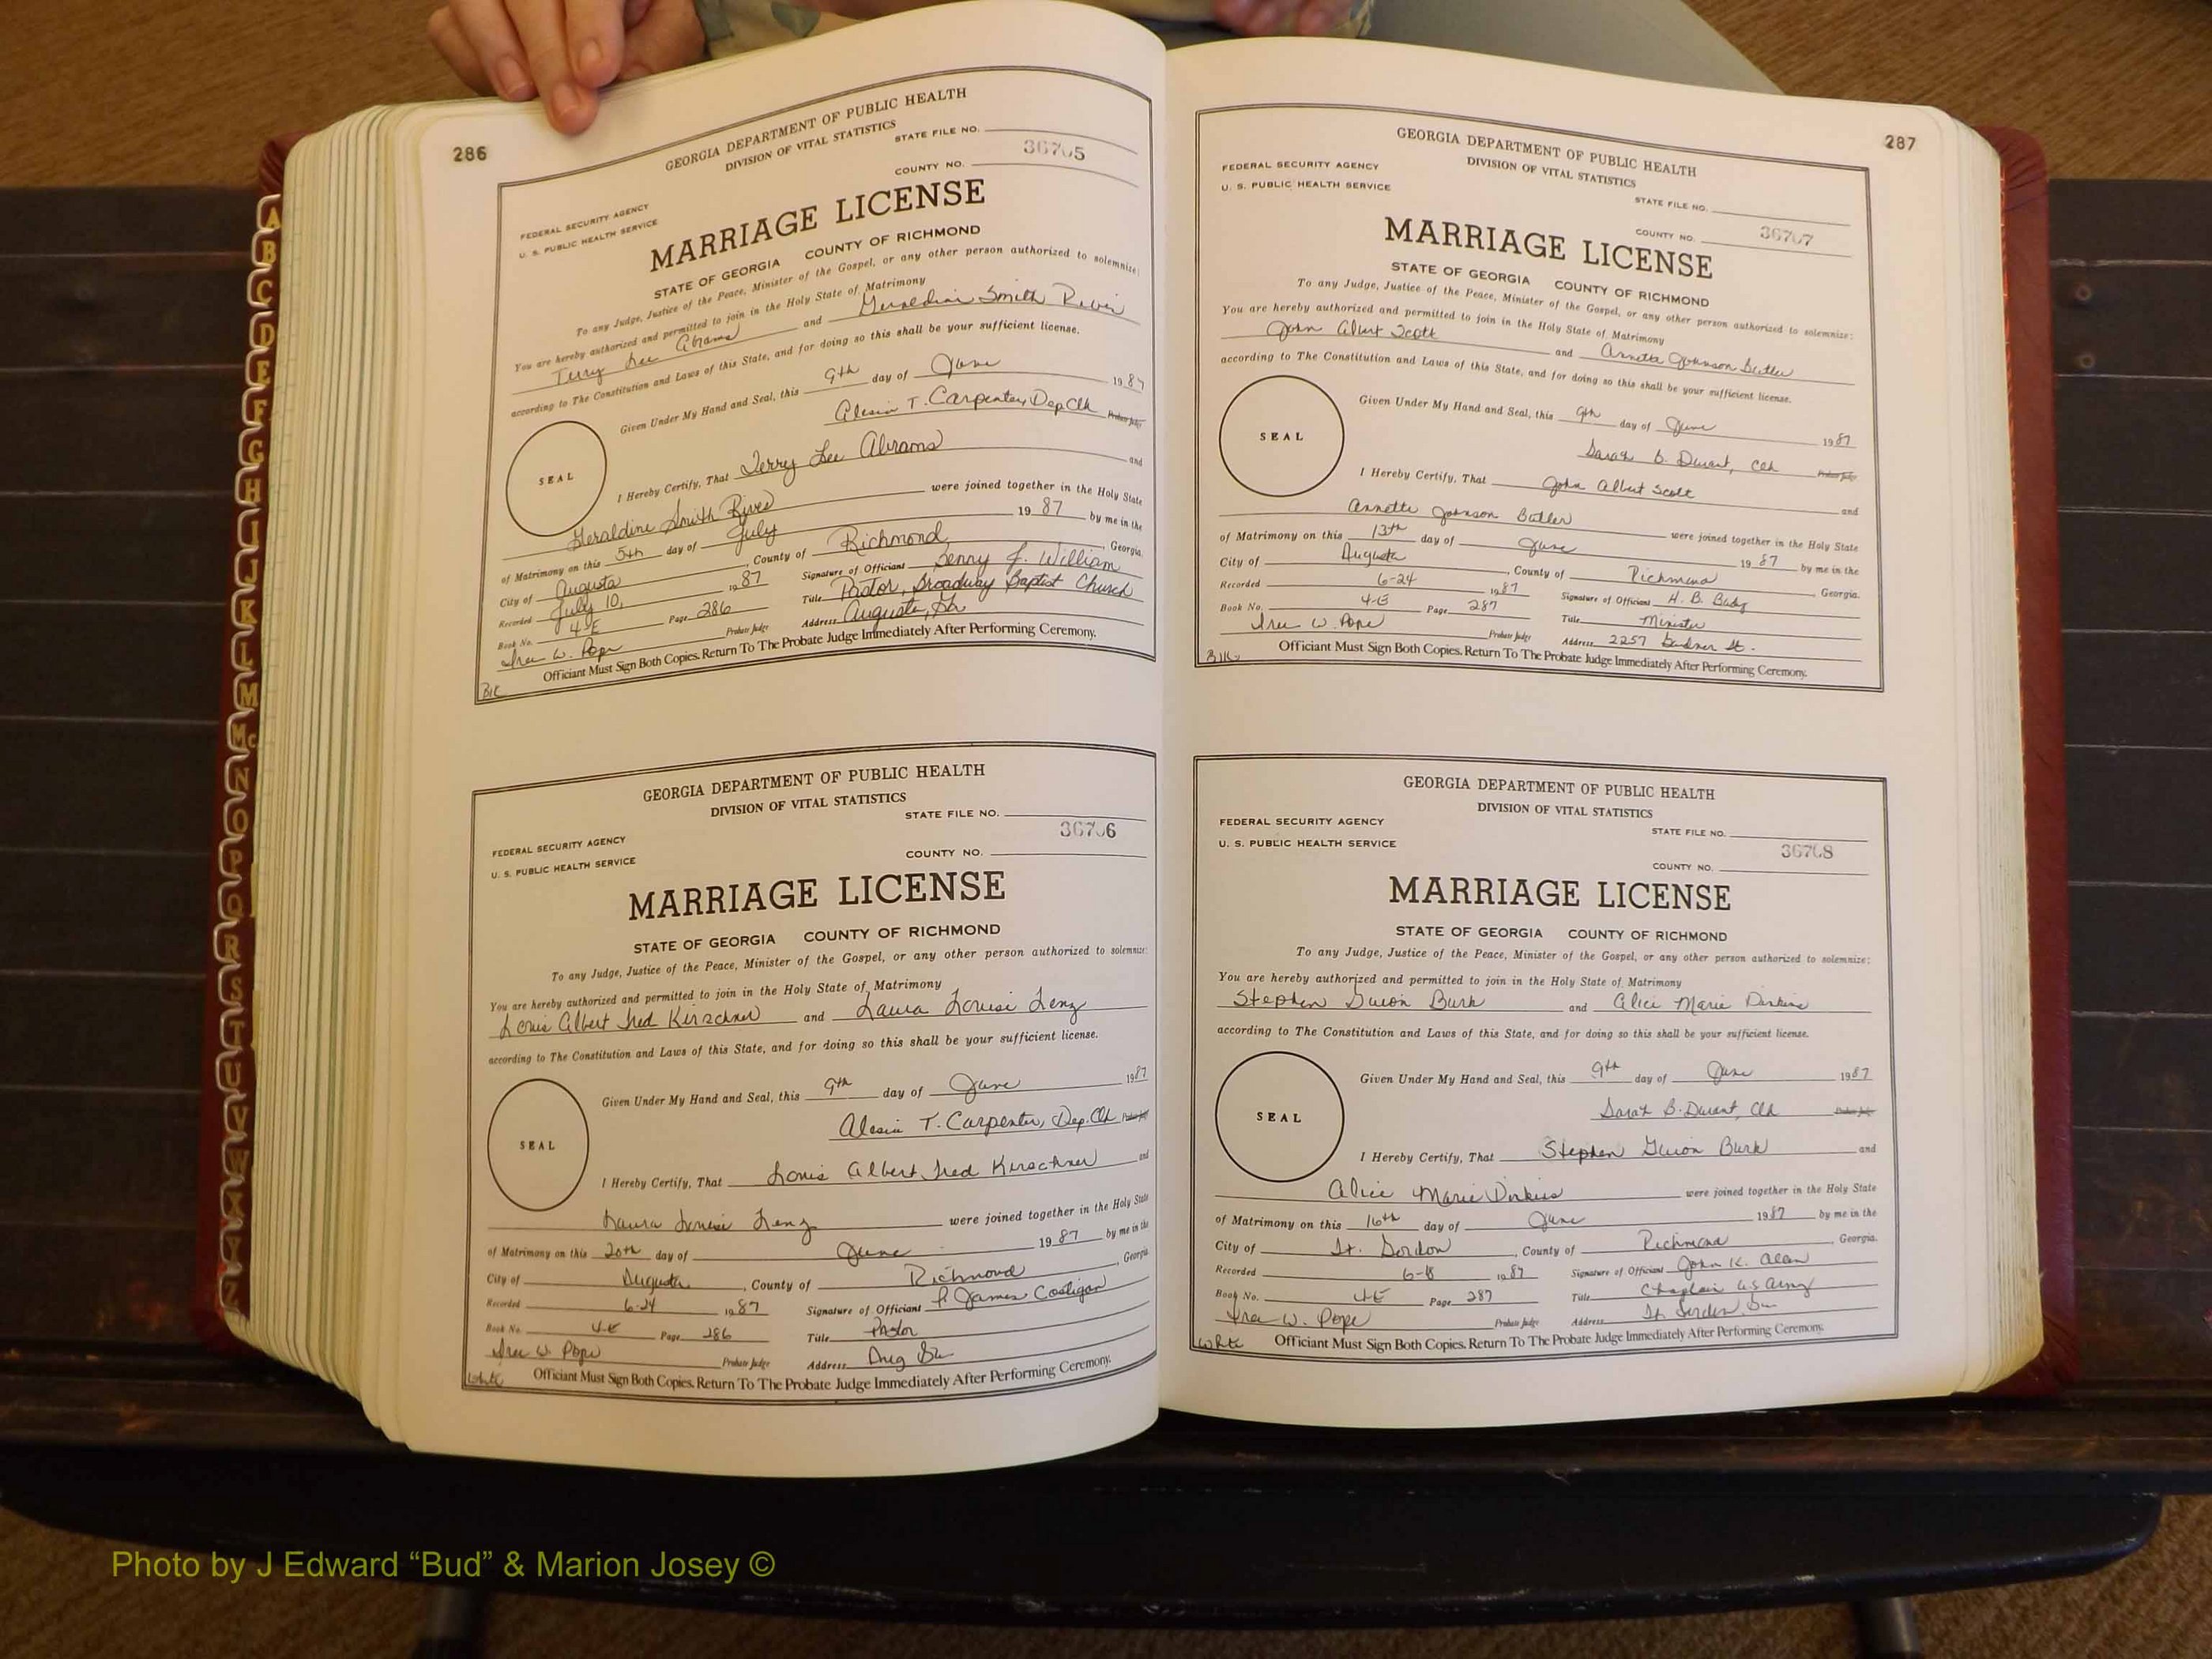 286
GEORGIA DEPARTMENT OF PUBLIC HEALTH
DIVISION OF VITAL STATISTICS
STATE FILE NO.
36705
COUNTY NO.
FEDERAL SECURITY AGENCY
U. S. PUBLIC HEALTH SERVICE
MARRIAGE LICENSE
STATE OF GEORGIA COUNTY OF RICHMOND
To any Judge, Justice of the Peace, Minister of the Gospel, or any other person authorized to solemnize:
You are hereby authorized and permitted to join in the Holy State of Matrimony
Terry Lee Abrams and Geraldine Smith
according to The Constitution and Laws of this State, and for doing so this shall be your sufficient license.
Given Under My Hand and Seal, this 9th day of June 1987
Alesia T. Carpenter, Dep Clk Probate Judge
SEAL
I Hereby Certify, That Terry Lee Abrams and
Geraldine Smith were joined together in the Holy State
of Matrimony on this 5th day of July 1987 by me in the
City of Augusta, County of Richmond, Georgia.
Recorded July 10, 1987 Signature of Officiant
Book No. 4-E Page 286 Title Pastor, Broadway Baptist Church
Ira W. Pope Probate Judge Address Augusta, Ga
Officiant Must Sign Both Copies. Return To The Probate Judge Immediately After Performing Ceremony.
Blk
GEORGIA DEPARTMENT OF PUBLIC HEALTH
DIVISION OF VITAL STATISTICS
STATE FILE NO.
36706
COUNTY NO.
FEDERAL SECURITY AGENCY
U. S. PUBLIC HEALTH SERVICE
MARRIAGE LICENSE
STATE OF GEORGIA COUNTY OF RICHMOND
To any Judge, Justice of the Peace, Minister of the Gospel, or any other person authorized to solemnize:
You are hereby authorized and permitted to join in the Holy State of Matrimony
Louis Albert Fred Kirschner and Laura Louise Lenz
according to The Constitution and Laws of this State, and for doing so this shall be your sufficient license.
Given Under My Hand and Seal, this 9th day of June 1987
Alesia T. Carpenter, Dep. Clk Probate Judge
SEAL
I Hereby Certify, That Louis Albert Fred Kirschner and
Laura Louise Lenz were joined together in the Holy State
of Matrimony on this 20th day of June 1987 by me in the
City of Augusta, County of Richmond, Georgia.
Recorded 6-24 1987 Signature of Officiant P. James Costigan
Book No. 4-E Page 286 Title Pastor
Ira W. Pope Probate Judge Address Aug Ga
White Officiant Must Sign Both Copies. Return To The Probate Judge Immediately After Performing Ceremony.
287
GEORGIA DEPARTMENT OF PUBLIC HEALTH
DIVISION OF VITAL STATISTICS
FEDERAL SECURITY AGENCY
U. S. PUBLIC HEALTH SERVICE
STATE FILE NO.
36707
COUNTY NO.
MARRIAGE LICENSE
STATE OF GEORGIA COUNTY OF RICHMOND
To any Judge, Justice of the Peace, Minister of the Gospel, or any other person authorized to solemnize:
You are hereby authorized and permitted to join in the Holy State of Matrimony
John Albert Scott and Annette Johnson Butler
according to The Constitution and Laws of this State, and for doing so this shall be your sufficient license.
Given Under My Hand and Seal, this 9th day of June 1987
Sarah B. Durant, Clk Probate Judge
SEAL
I Hereby Certify, That John Albert Scott and
Annette Johnson Butler were joined together in the Holy State
of Matrimony on this 13th day of June 1987 by me in the
City of Augusta, County of Richmond Georgia.
Recorded 6-24 1987 Signature of Officiant H. B.
Book No. 4-E Page 287 Title Minister
Ira W. Pope Probate Judge Address 2257 St.
Blk Officiant Must Sign Both Copies. Return To The Probate Judge Immediately After Performing Ceremony.
GEORGIA DEPARTMENT OF PUBLIC HEALTH
DIVISION OF VITAL STATISTICS
FEDERAL SECURITY AGENCY
U. S. PUBLIC HEALTH SERVICE
STATE FILE NO.
36708
COUNTY NO.
MARRIAGE LICENSE
STATE OF GEORGIA COUNTY OF RICHMOND
To any Judge, Justice of the Peace, Minister of the Gospel, or any other person authorized to solemnize:
You are hereby authorized and permitted to join in the Holy State of Matrimony
Stephen Burk and Alice Marie
according to The Constitution and Laws of this State, and for doing so this shall be your sufficient license.
Given Under My Hand and Seal, this 9th day of June 1987
Sarah B. Durant, Clk Probate Judge
SEAL
I Hereby Certify, That Stephen Burk and
Alice Marie were joined together in the Holy State
of Matrimony on this 16th day of June 1987 by me in the
City of Ft. Gordon, County of Richmond, Georgia.
Recorded 6-18 1987 Signature of Officiant John K.
Book No. 4-E Page 287 Title Chaplain US Army
Ira W. Pope Probate Judge Address Ft. Gordon, Ga
White Officiant Must Sign Both Copies. Return To The Probate Judge Immediately After Performing Ceremony.
A
B
C
D
E
F
G
H
I
J
K
L
M
Mc
N
O
P
Q
R
S
T
U
V
W
X
Y
Z
Photo by J Edward “Bud” & Marion Josey ©